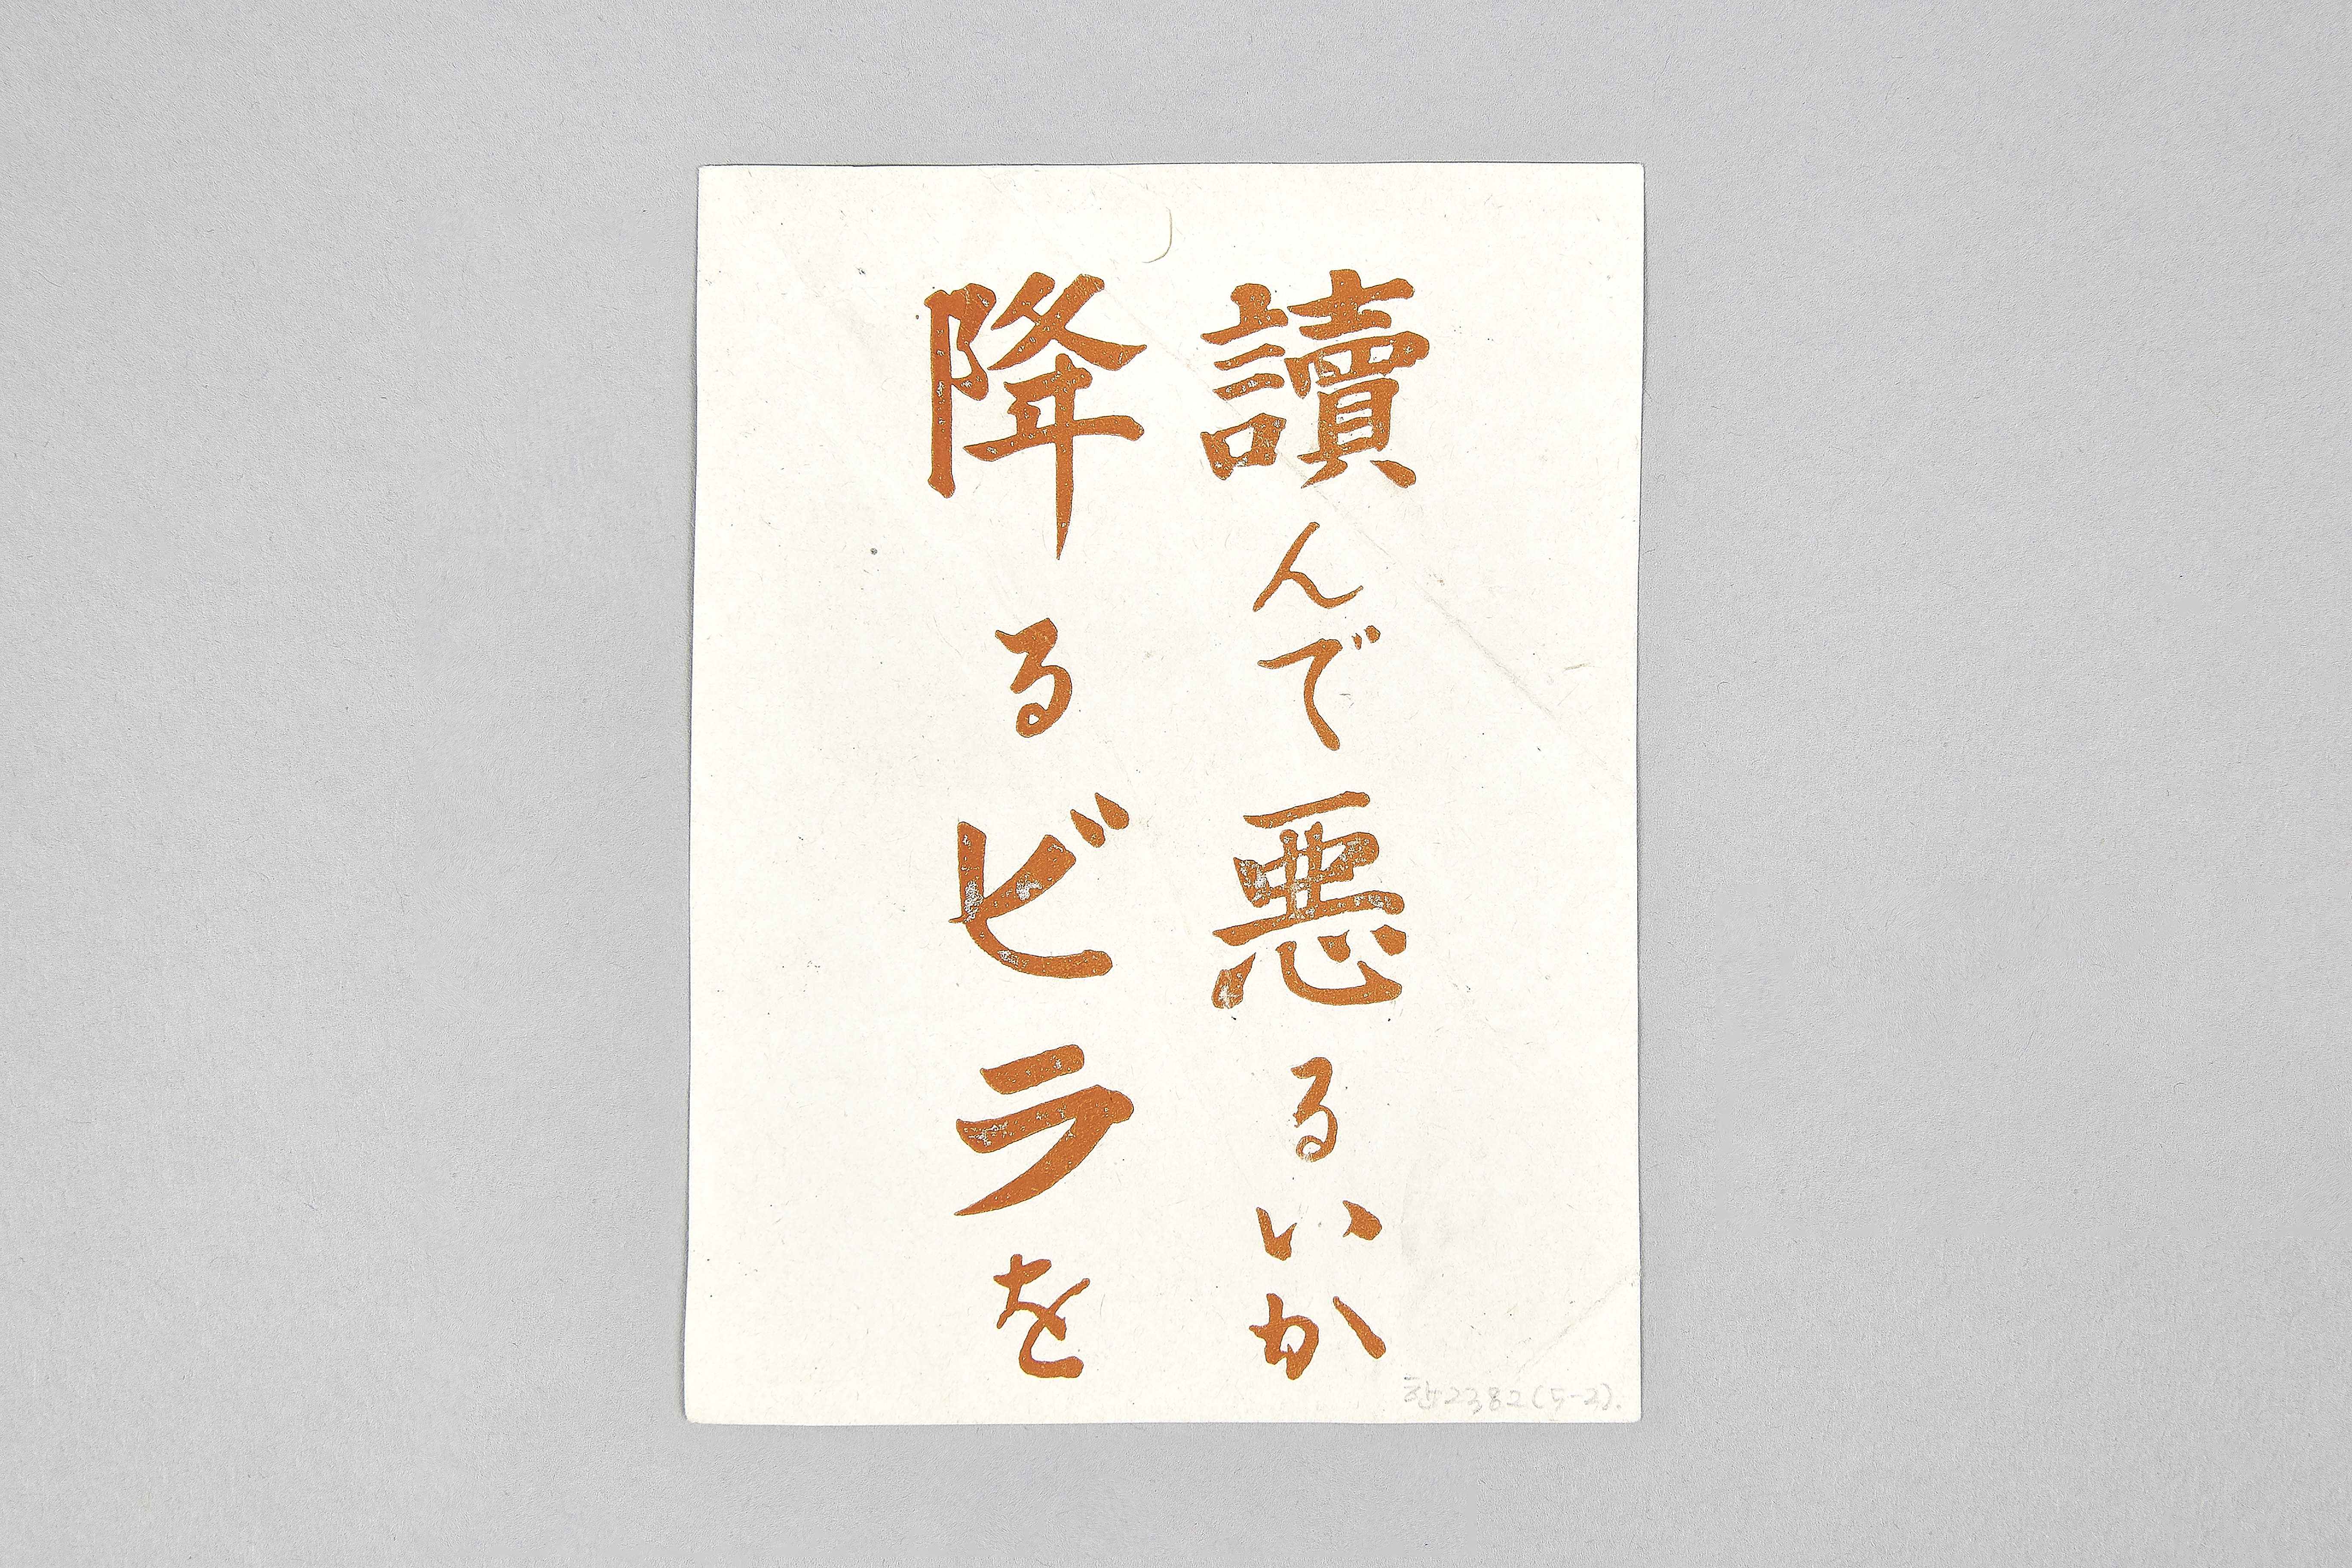 讀んで悪るいか
降るビラを
2382(5-2).